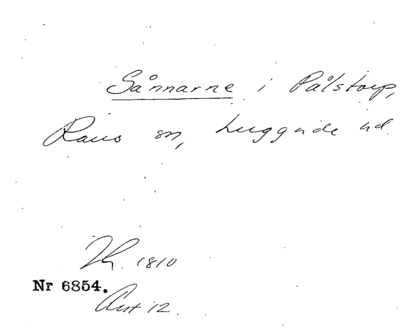 Sånnarne i Pålstorp,
Raus sn, Luggude hd.
Th. 1810
Nr 6854.
Ant 12.